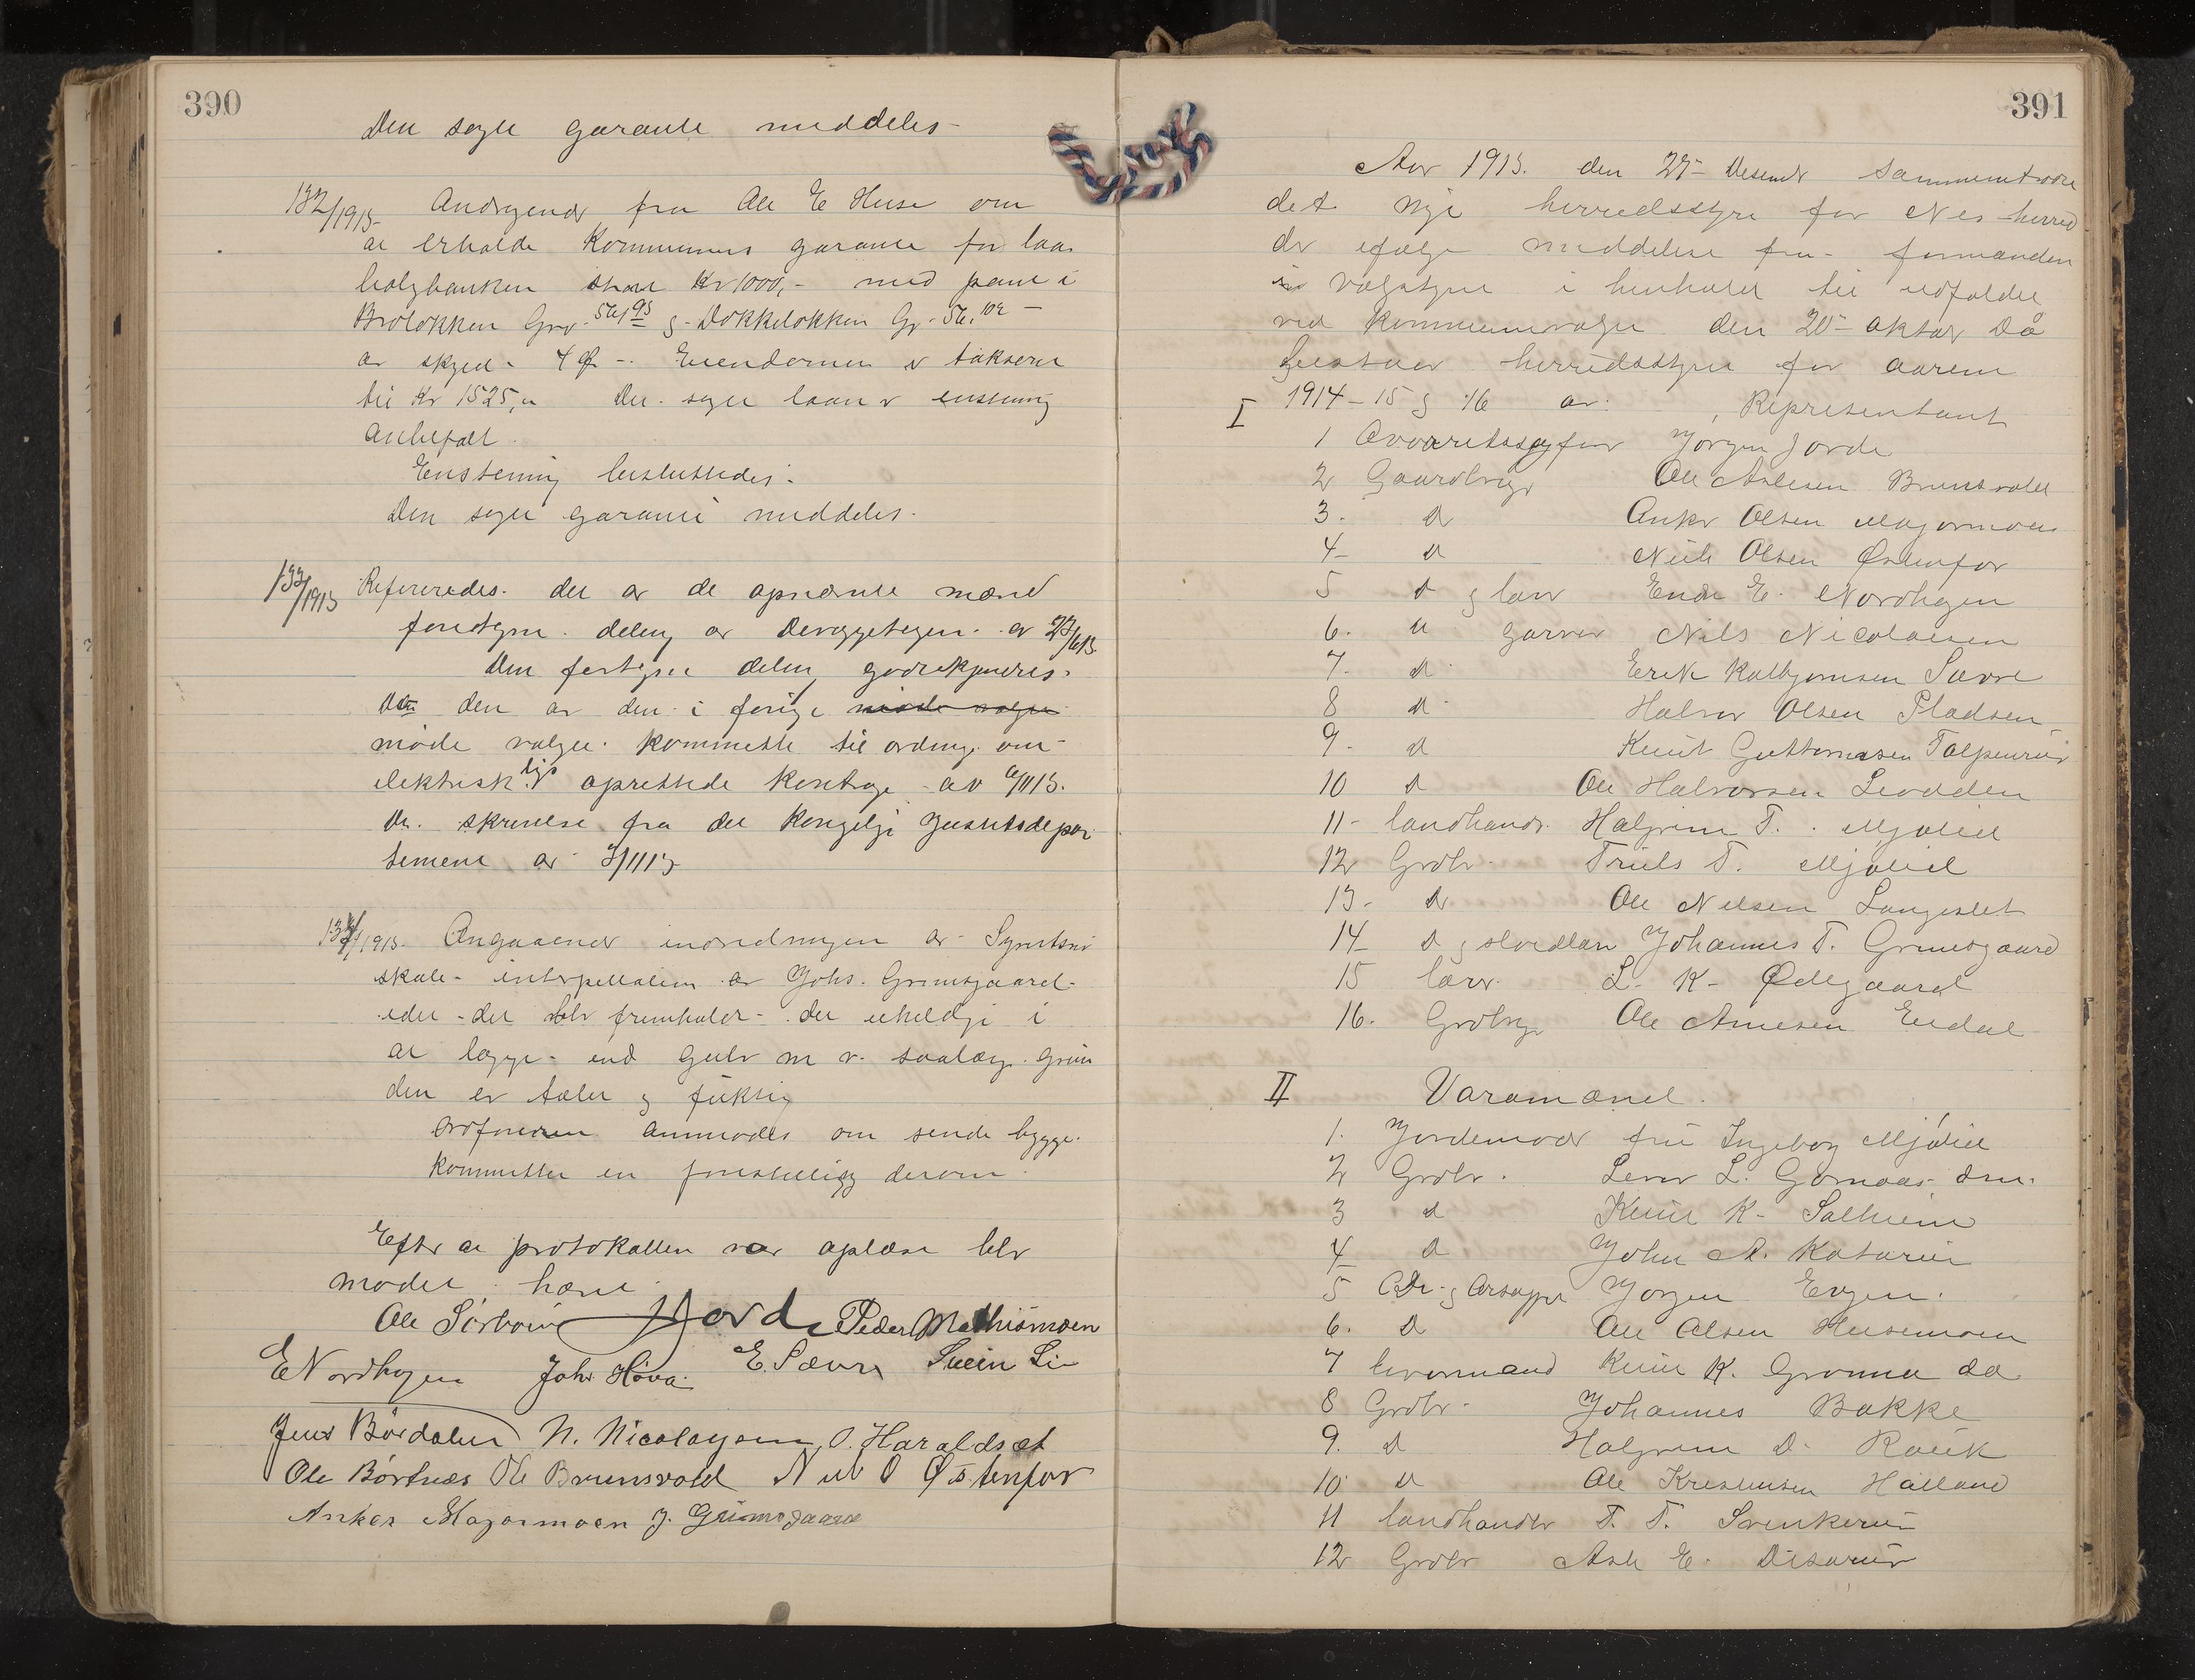 390
Den søgte garante meddeles
132/1913 Andragende fra Ole E Huse om
at erholde kommunens garante for laan
i kr 1000,- med pant i
Brotøkken Grno 56,95 g Dokkeløkken Gr. 56,102
av skyld - 4 Eiendommen er takseret
til Kr 1525,- Det søgte laan er enstemmig
anbefalt.
Enstemmig besluttedes:
Den søgte garanti meddeles.
133/1913 Refereredes det av de opnævnte mænd
deling av av
Den deling godkjendes.
den av den i forrige møde valgte
møde valgte kommitte til ordning om
elektrisk lys oprettede kontragt av 6/11 13.
skrivelse fra det kongelige Justitsdepar
tement av 3/11 13
134/1913. Angaaende indredningen av
skole - interpellation av Johs. Grimsgaard
der blev fremholdt det uheldige i
at lægge ind gulv m v. saalænge grun
den er tælet g fugtig
Ordføreren anmodes om sende bygge-
kommitten en forestilling derom.
Efter at protokollen var oplæst blev
mødet hævet
Ole Sørbøen JJorde Peder Mathismoen
E Nordhagen Johs Høva E. Sævre Svein Li
Jens Børdalen N. Nicolaysen O. Haraldset
Ole Børtnes Ole Brunsvold Nils O Østenfor
Anker Magormoen J. Grimsgaard
391
Aar 1913. den 27- Desember sammentraadte
det nye herredsstyre for Nes herred
der ifølge meddelelse fra formanden
i valgstyret i henhold til udfaldet
ved kommunevalget den 20- oktober Da
bestaar herredsstyret for aarene
1914-15 g 16 av: Representant
I
1 Overretssagfører Jørgen Jorde
2 Gaardbruger Ole Asleson Brunsvold
3. d Anker Olsen Magormoen
4- d Nils Olsen Østenfor
5 d g lærer Endre E. Nordhagen
6. d garver Nils Nicolaisen
7. d Erik Kolbjørnsen Sævre
8 d Halvor Olsen Pladsen
9. d Knut Guttormsen Tolpinrud
10 d Ole Halvorsen Livdden
11- landhandl. Halgrim T. Mjølid
12 Grdbr. Truls T. Mjølid
13- d Ole Nilsen Langeslet
14- d g Johannes T. Grimsgaard
15 lærer L. K- Ødegaard
16. Grdbrgr Ole Arnesen Eidal
II Varamænd.
1. Jordemoder fru Ingeborg Mjølid
2 Grdbr. Lever L. Garnaas
3 d Knut K- Solheim
4 d John A.
5 Jørgen Ergen.
6. d Ole Olsen Husemoen
7 Knut K. Grønna
8 Grdbr. Johannes Bakke
9. d Halgrim D. Rauk
10 d Ole Kristensen Halland
11 landhandler T. T. Svenkerud
12 Grdbr Asle E. Diserud